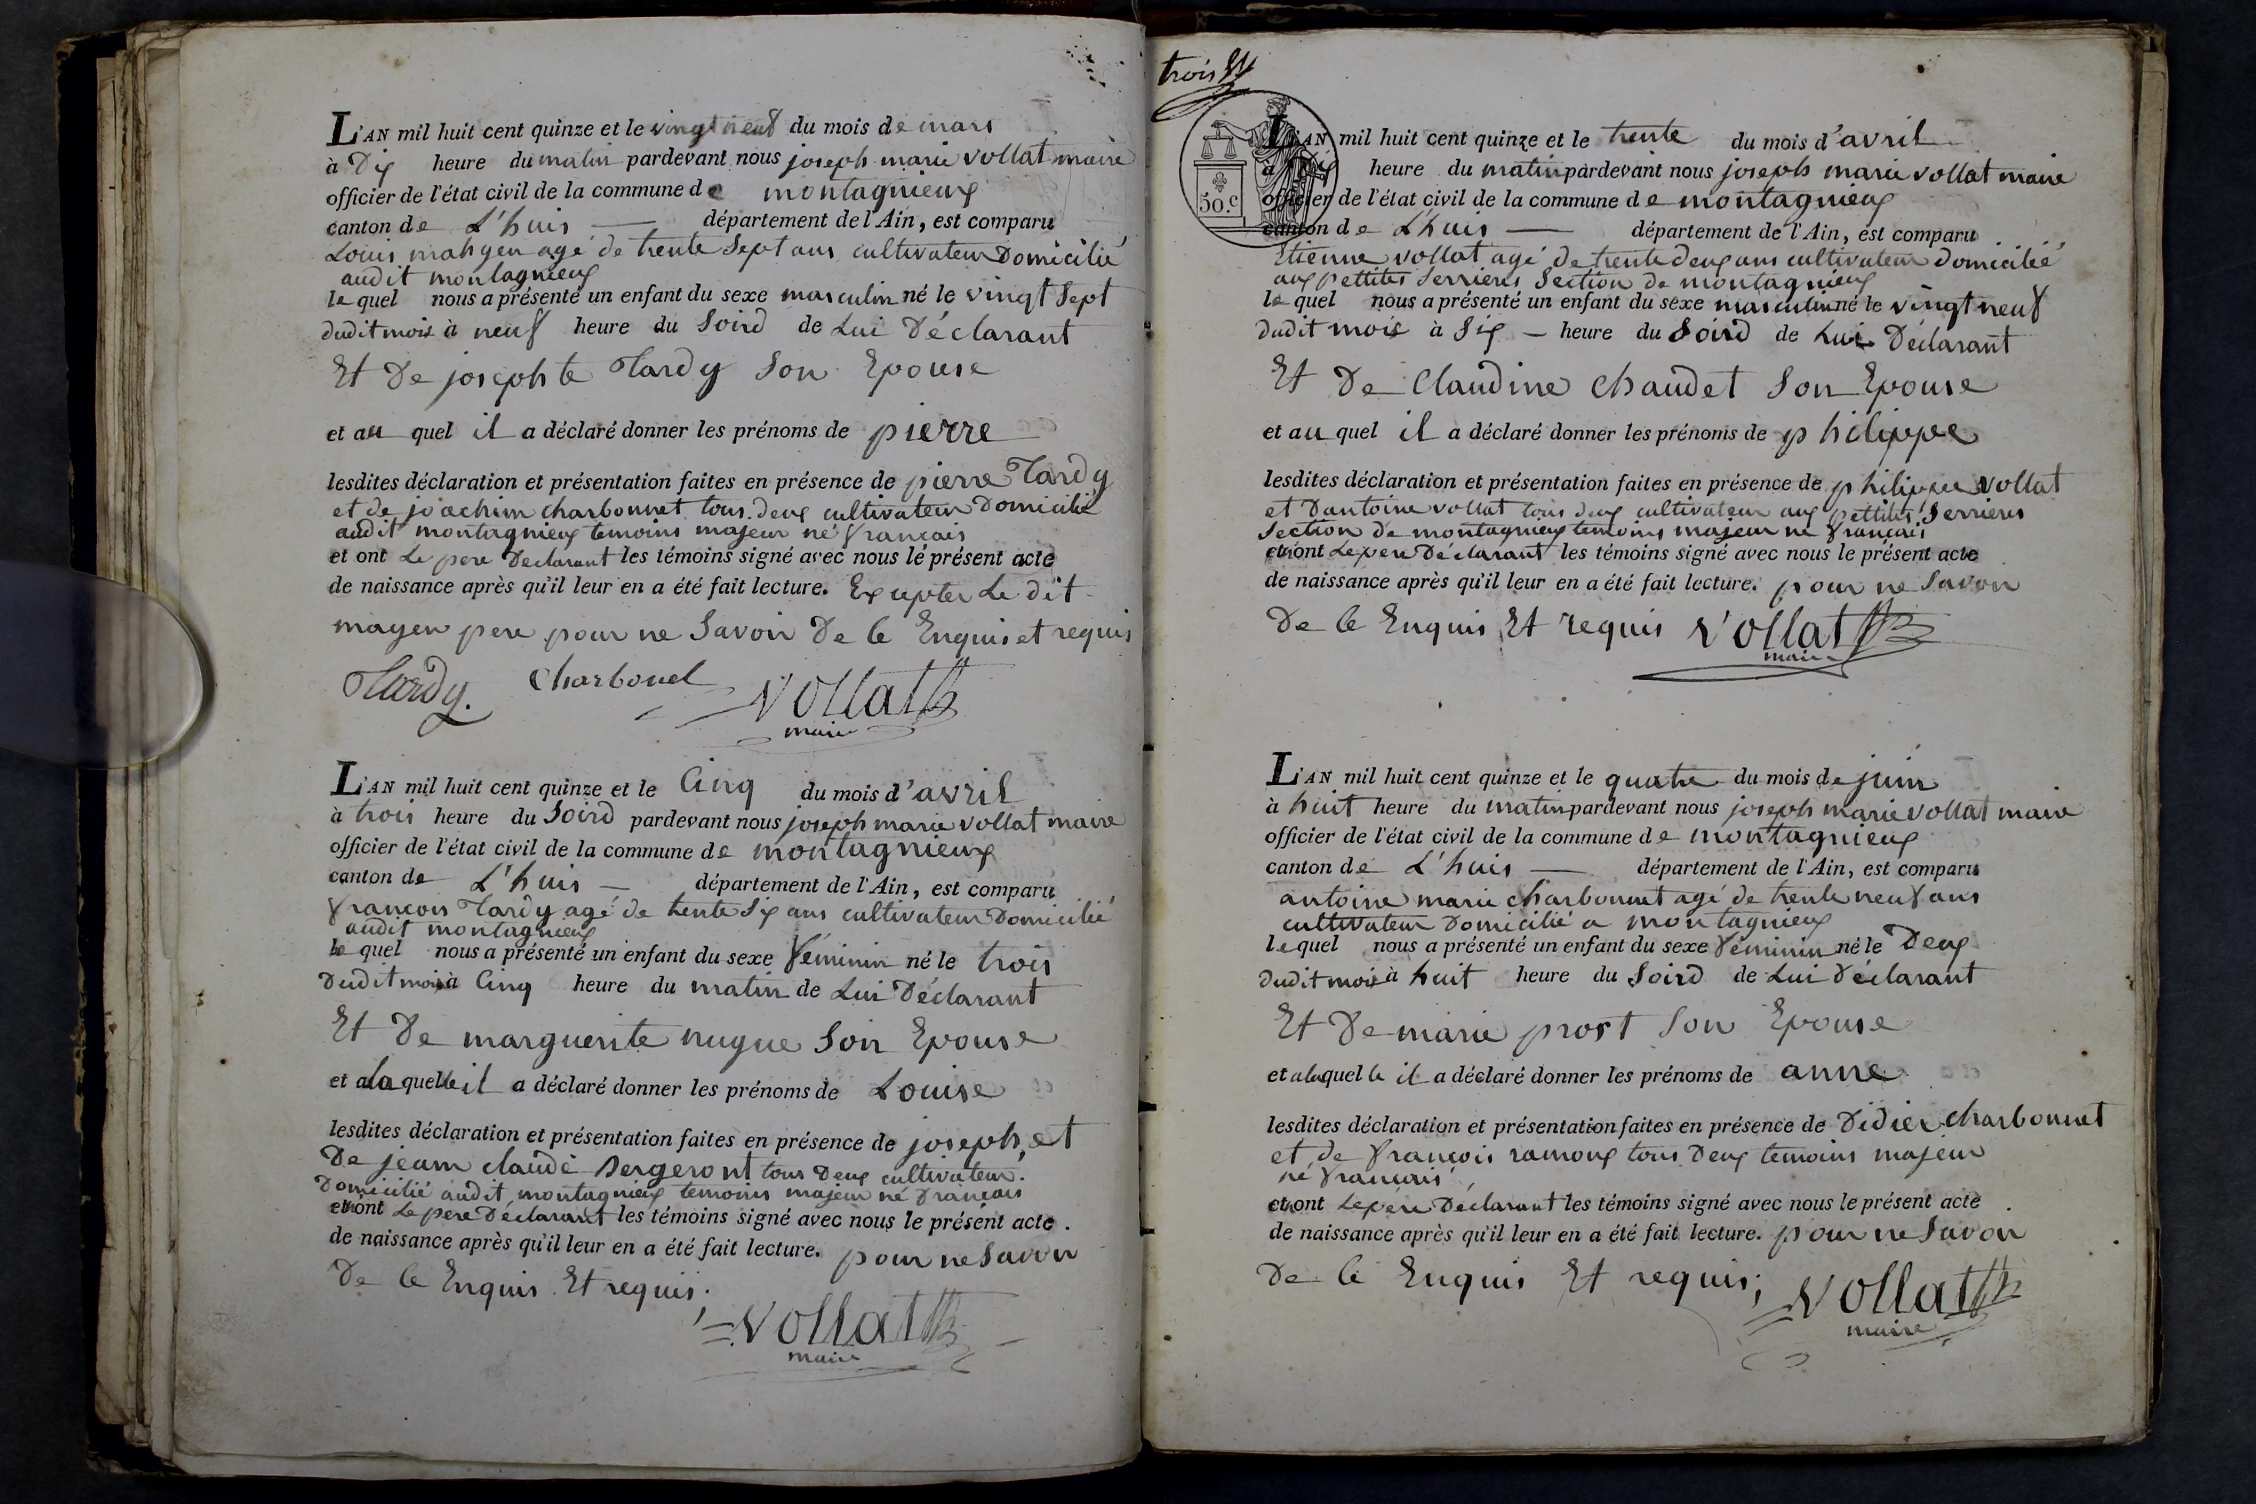 L'AN mil huit cent quinze et le vingt neuf du mois de mars
à Dix heure du matin pardevant nous joseph marie vollat maire
officier de l'état civil de la commune de montagnieux
canton de L'huis — département de l'Ain, est comparu
Louis mahyeu agé de trente Sept ans cultivateur Domicilié
audit montagnieux
le quel nous a présenté un enfant du sexe masculin né le vingt Sept
dudit mois à neuf heure du Soird de Lui Déclarant
Et De josephte Tardy Son Epouse
et au quel il a déclaré donner les prénoms de pierre
lesdites déclaration et présentation faites en présence de pierre Tardy
et de joachim charbonnet tous deux cultivateur Domicilié
audit montagnieux temoins majeur né français
et ont Le pere Declarant les témoins signé avec nous le présent acte
de naissance après qu'il leur en a été fait lecture. Exepter Le dit
mayeu pere pour ne Savoir De le Enquis et requis
Tardy. Charbonel Vollat
maire
L'AN mil huit cent quinze et le Cinq du mois d'avril
à trois heure du Soird pardevant nous joseph marie vollat maire
officier de l'état civil de la commune de montagnieux
canton de L'huis — département de l'Ain, est comparu
françois Tardy agé de trente Six ans cultivateur Domicilié
audit montagnieux
le quel nous a présenté un enfant du sexe féminin né le trois
Dudit mois à Cinq heure du matin de Lui Déclarant
Et De marguerite nugue Son Epouse
et a la quelle il a déclaré donner les prénoms de Louise
lesdites déclaration et présentation faites en présence de joseph, et
De jeam claude Bergeront tous Deux cultivateur.
Domicilié audit montagnieux temoins majeur né français
et n'ont Le pere Déclarant les témoins signé avec nous le présent acte.
de naissance après qu'il leur en a été fait lecture. pour ne Savoir
De le Enquis Et requis.
Vollat
maire
trois
50.c
L'AN mil huit cent quinze et le trente du mois d'avril
à Dix heure du matin pardevant nous joseph marie vollat maire
officier de l'état civil de la commune de montagnieux
canton de L'huis — département de l'Ain, est comparu
Etienne vollat agé de trente deux ans cultivateur Domicilié
aux pettites Serrieres Section de montagnieux
le quel nous a présenté un enfant du sexe masculin né le vingt neuf
dudit mois à Six — heure du Soird de Lui Déclarant
Et De Claudine Chaudet Son Epouse
et au quel il a déclaré donner les prénoms de philippe
lesdites déclaration et présentation faites en présence de philippe vollat
et D'antoine vollat tous deux cultivateur aux pettites Serrieres
Section de montagnieux temoins majeur né français
et n'ont Le pere Déclarant les témoins signé avec nous le présent acte
de naissance après qu'il leur en a été fait lecture. pour ne Savoir
De le Enquis Et requis Vollat
maire
L'AN mil huit cent quinze et le quatre du mois de juin
à huit heure du matin pardevant nous joseph marie vollat maire
officier de l'état civil de la commune de montagnieux
canton de L'huis — département de l'Ain, est comparu
antoine marie charbonnet agé de trente neuf ans
cultivateur Domicilié a montagnieux
le quel nous a présenté un enfant du sexe féminin né le Deux
dudit mois à huit heure du Soird de Lui Déclarant
Et De marie prost Son Epouse
et a la quelle il a déclaré donner les prénoms de anne
lesdites déclaration et présentation faites en présence de Didier charbonnet
et de françois ramoux tous Deux temoins majeur
né français
et n'ont Le pere Déclarant les témoins signé avec nous le présent acte
de naissance après qu'il leur en a été fait lecture. pour ne Savoir
De le Enquis Et requis;
Vollat
maire